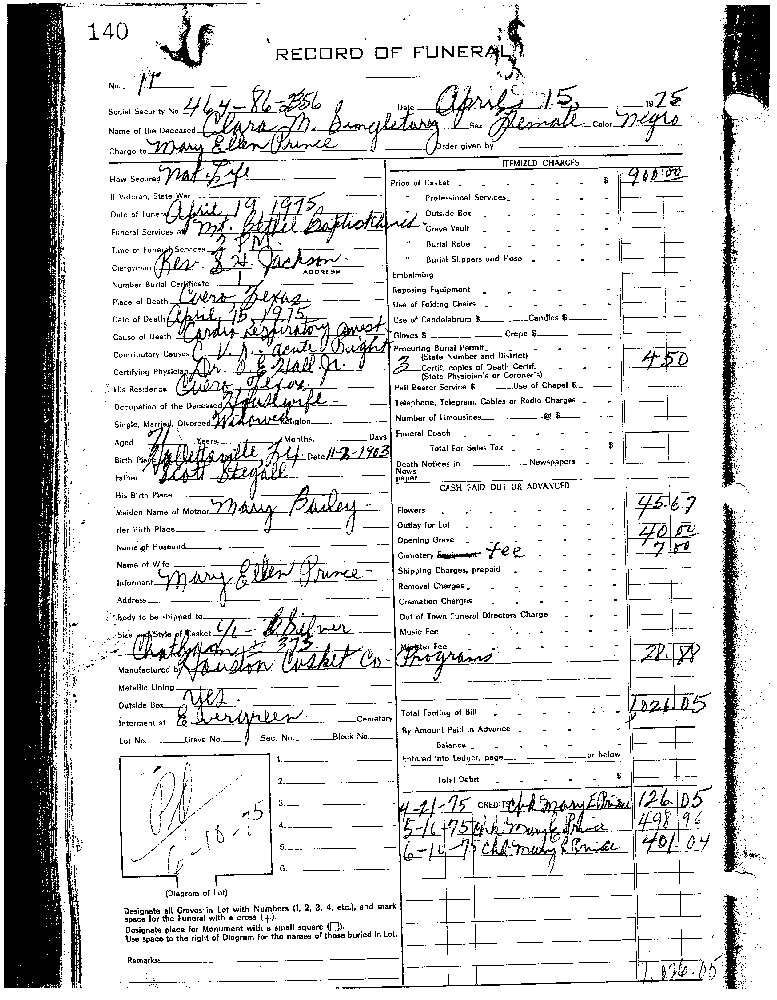 140
RECORD OF FUNERAL
No.
Social Security No. 464-86- Date April 15, 1975
Name of the Deceased Clara M. Singletary Sex Female Color Negro
Charge to Mary Ellen Prince Order given by
How Secured Nat. Life
If Veteran, State War
Date of Funeral April 19, 1975
Funeral Services at Mt. Bethel Baptist Church
Time of Funeral Services 2 P.M.
Clergyman Rev. Jackson ADDRESS
Number Burial Certificate 1
Place of Death Cuero, Texas
Date of Death April 15, 1975
Cause of Death Cardio respiratory arrest
Contributory Causes acute Bright
Certifying Physician Dr. Hall Jr.
His Residence Cuero Texas
Occupation of the Deceased Housewife
Single, Married, Divorced Widowed Religion
Aged 71 Years Months Days
Birth Place Hallettsville, Tex Date 11-2-1903
Father Scott Stegall
His Birth Place
Maiden Name of Mother Mary Bailey
Her Birth Place
Name of Husband
Name of Wife
Informant Mary Ellen Prince
Address
Body to be shipped to
Size and Style of Casket Silver
Chatham # 375
Manufactured by Houston Casket Co.
Metallic Lining
Outside Box Yes
Interment at Evergreen Cemetery
Lot No. Grave No. Sec. No. Block No.
Pd
6-18-75
1.
2.
3.
4.
5.
6.
(Diagram of Lot)
Designate all Graves in Lot with Numbers (1, 2, 3, 4, etc.), and mark
space for the Funeral with a cross (+).
Designate place for Monument with a small square (□).
Use space to the right of Diagram for the names of those buried in Lot.
Remarks:
ITEMIZED CHARGES
Price of Casket $ 900.00
" Professional Services
" Outside Box
" Grave Vault
" Burial Robe
" Burial Slippers and Hose
Embalming
Reposing Equipment
Use of Folding Chairs
Use of Candelabrum $ Candles $
Gloves $ Crepe $
Procuring Burial Permit
(State Number and District)
3 Certif. copies of Death Certif. 4 50
(State Physician's or Coroner's)
Pall Bearer Service $ Use of Chapel $
Telephone, Telegram, Cables or Radio Charges
Number of Limousines @ $
Funeral Coach
Total For Sales Tax $
Death Notices in Newspapers
News
paper
CASH PAID OUT OR ADVANCED
Flowers 45.67
Outlay for Lot
Opening Grave 40 00
Cemetery Equipment fee 7 00
Shipping Charges, prepaid
Removal Charges
Cremation Charges
Out of Town Funeral Directors Charge
Music Fee
Minister Fee
Programs 28.88
Total Footing of Bill 1,026.05
By Amount Paid in Advance
Balance
Entered into Ledger, page or below
Total Debit $
4-21-75 CREDITS Chk Mary E Prince 126.05
5-16-75 Chk Mary E Prince 498 96
6-16-75 Chk Mary E Prince 401 04
1,026.05